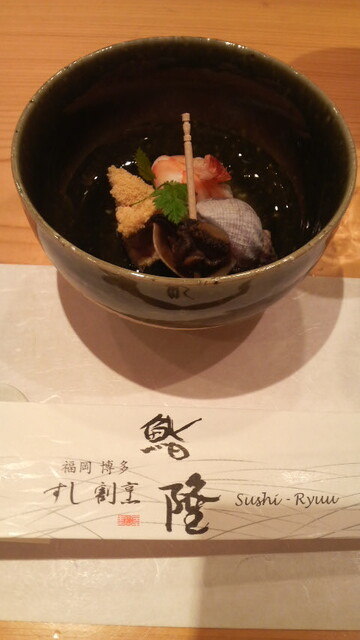 鮨 隆
福岡 博多
すし 割烹
Sushi-Ryuu